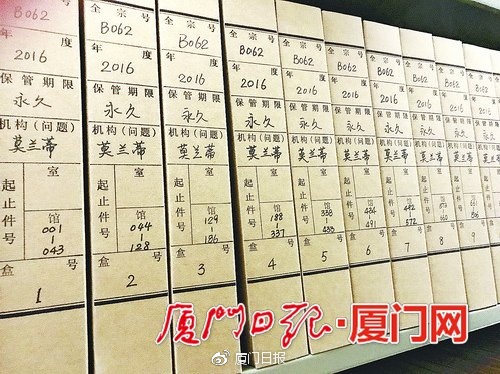 B062
年 度
2016
保管期限
永久
机构(问题)
莫兰蒂
室
起止件号
馆
001
-
043
盒号
1
B062
年 度
2016
保管期限
永久
机构(问题)
莫兰蒂
室
起止件号
馆
044
-
128
盒号
2
全宗号
B062
年 度
2016
保管期限
永久
机构(问题)
莫兰蒂
室
起止件号
馆
129
-
186
盒号
3
全宗号
B062
年 度
2016
保管期限
永久
机构(问题)
莫兰蒂
室
起止件号
馆
188
-
337
盒号
4
全宗号
B062
年 度
2016
保管期限
永久
机构(问题)
莫兰蒂
室
起止件号
馆
338
-
433
盒号
5
全宗号
B062
年 度
2016
保管期限
永久
机构(问题)
莫兰蒂
室
起止件号
馆
491
盒号
6
全宗号
B062
年 度
2016
保管期限
永久
机构(问题)
莫兰蒂
室
起止件号
馆
492
572
盒号
7
全宗号
B062
年 度
2016
保管期限
永久
莫兰蒂
8
全宗号
B062
年 度
2016
保管期限
永久
莫兰蒂
9
厦门日报·厦门网
厦门日报